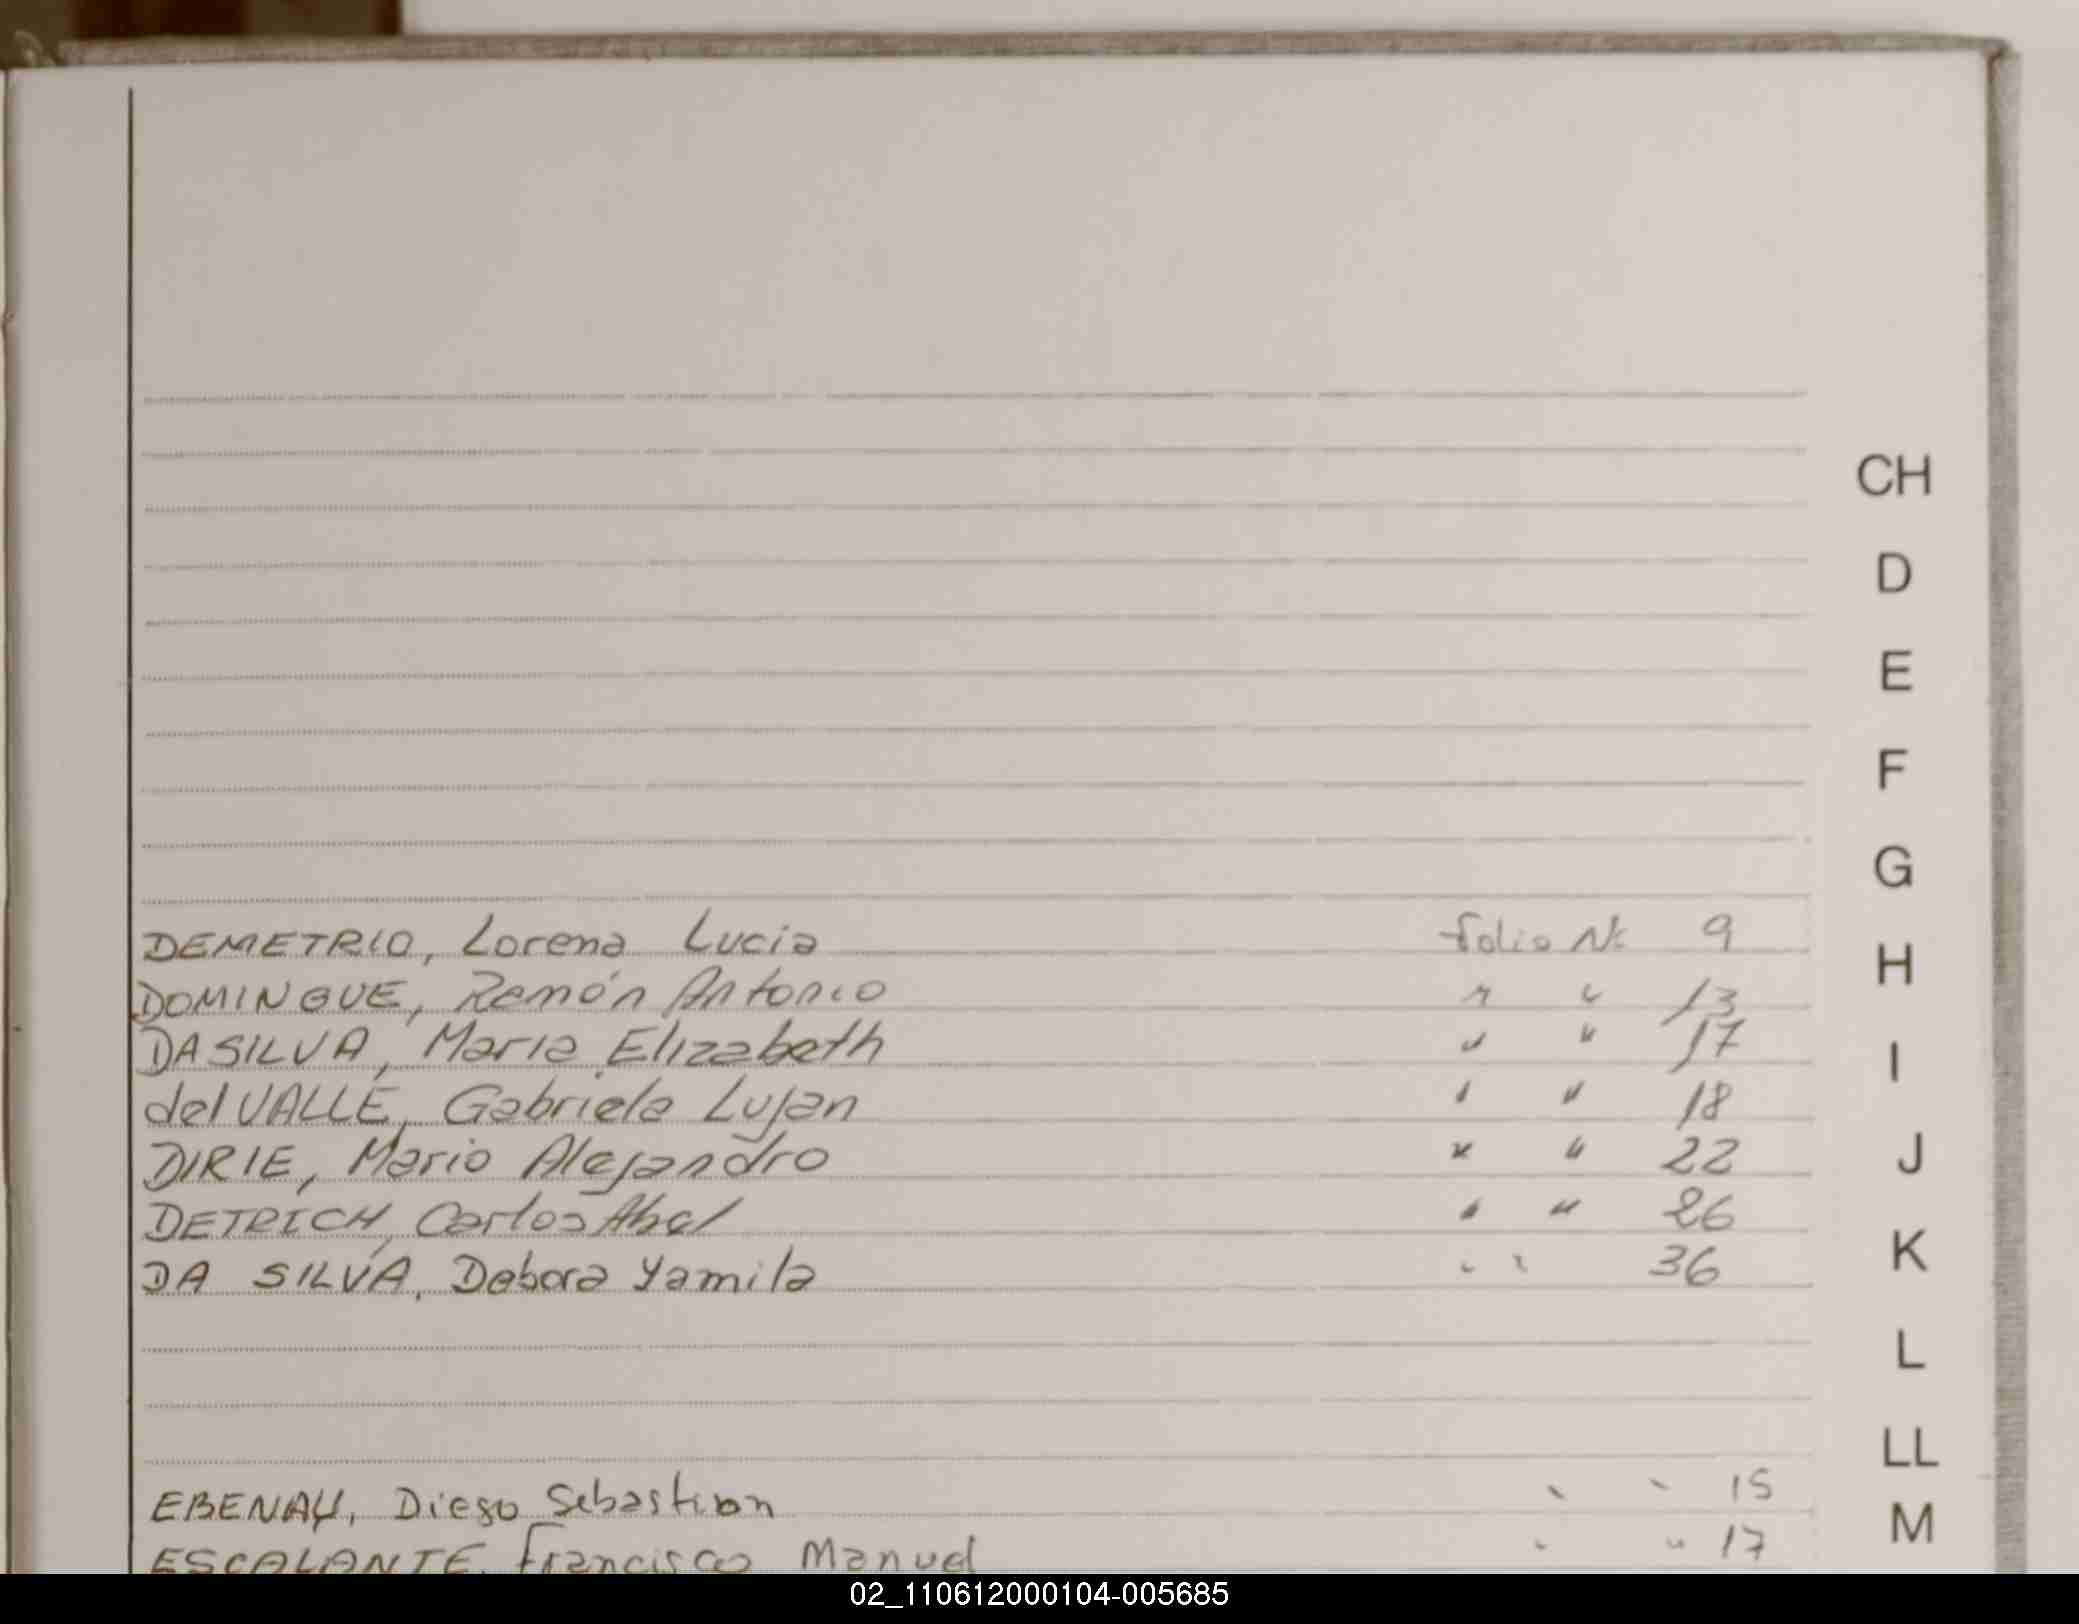 CH
D
E
F
G
DEMETRIO, Lorena Lucia folio Nº 9
H
DOMINGUE, Ramón Antonio " " 13
DASILVA, Maria Elizabeth " " 17
I
del VALLE, Gabriela Lujan " " 18
DIRIE, Mario Alejandro " " 22
J
DETRICH, Carlos Abel " " 26
DA SILVA, Debora Yamila " " 36
K
L
LL
EBENAU, Diego Sebastian " " 15
M
ESCALANTE, Francisco Manuel " " 17
02_110612000104-005685